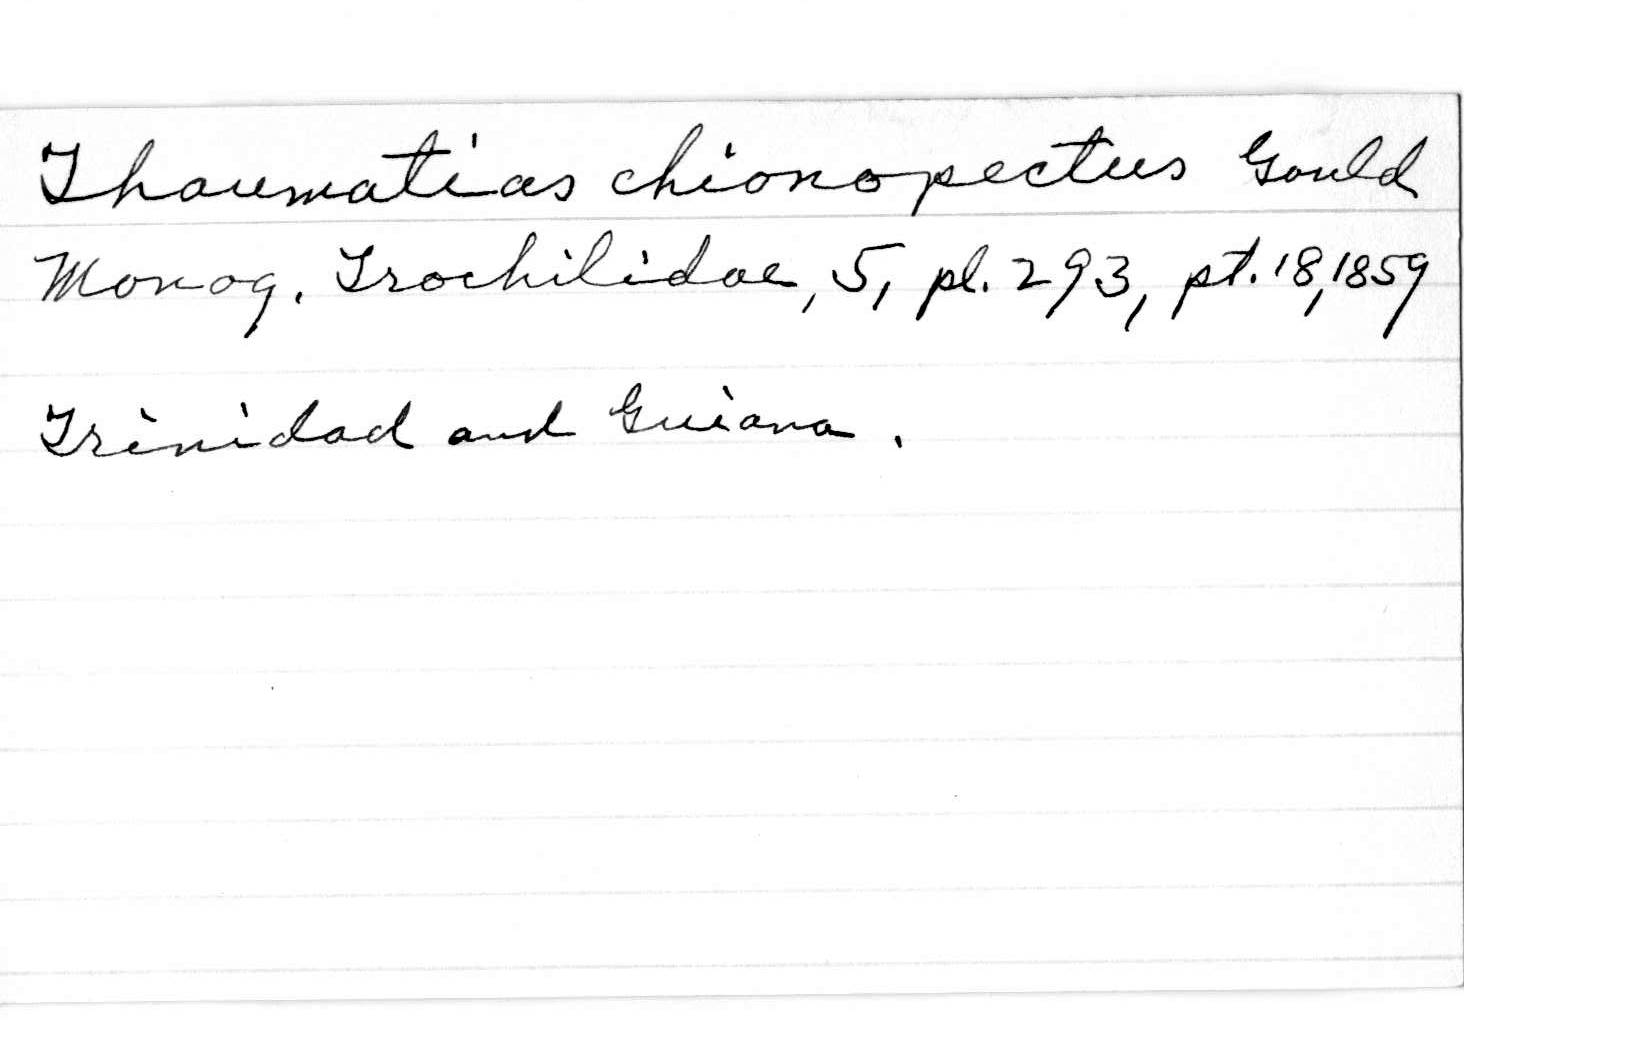 Thaumatias chionopectus Gould
Monog. Trochilidae, 5, pl. 293, pt. 18, 1859
Trinidad and Guiana.